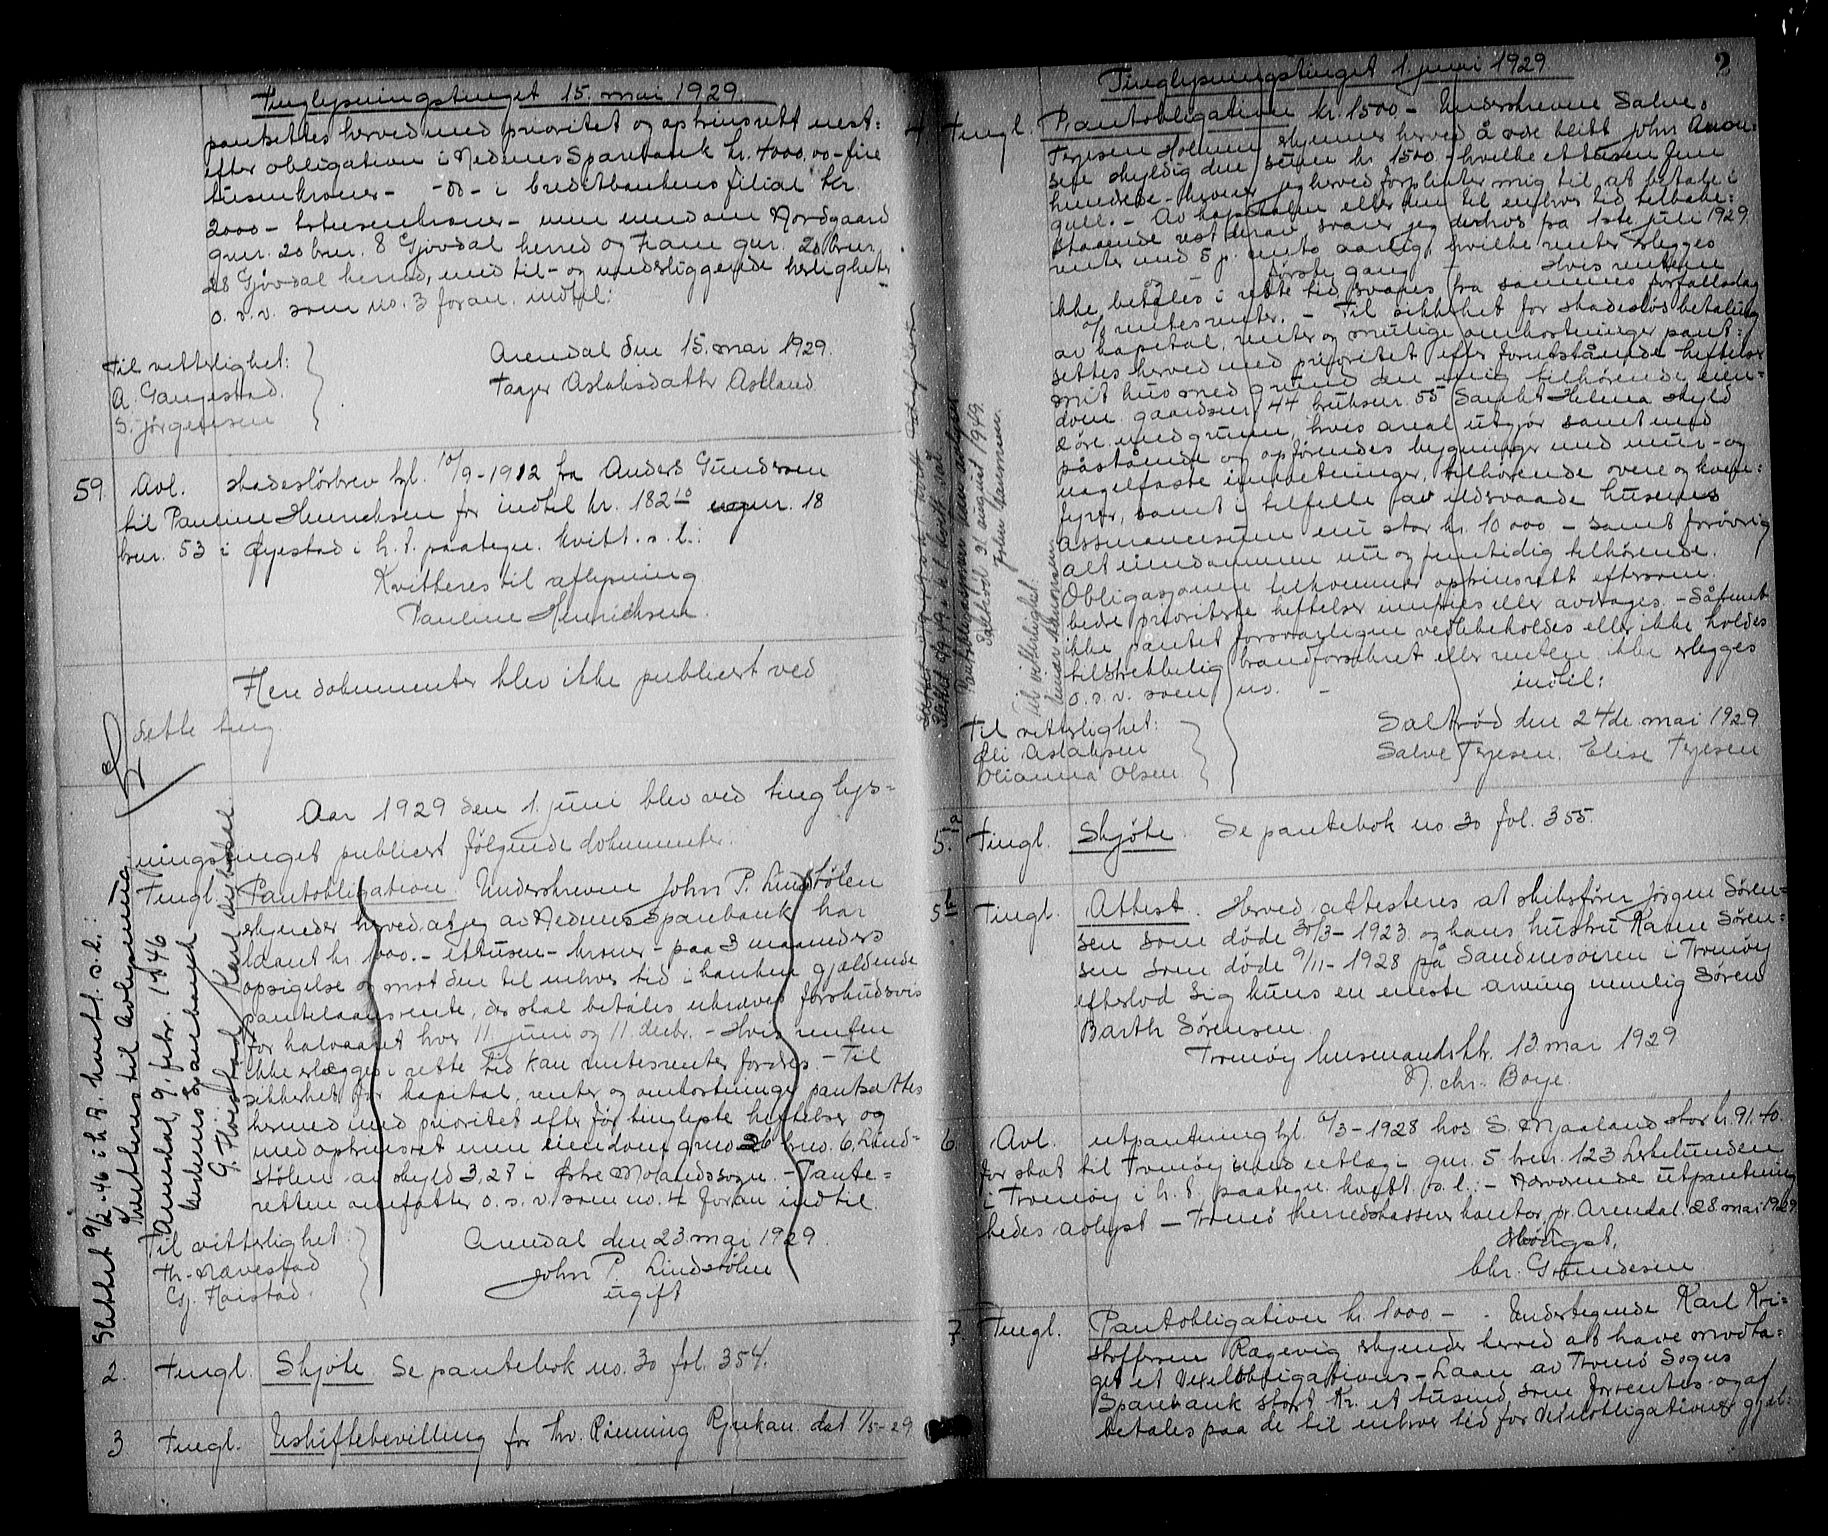 Tinglysningstinget 15. mai 1929
pantsettes herved med prioritet og optrinsrett nest-
efter obligation i Nedenes Sparebank kr. 4000,00 - fire
tusen kroner - -do- i Creditbankens filial kr.
2000 - totusenkroner - min eiendom Nordgaard
gnr. 20 bnr. 8 Gjøvdal herred og Fram gnr. 20 bnr.
28 Gjøvdal herred, med til- og underliggende herligheter
o. s. v. som no. 3 foran. indtil:
Til vitterlighet:
Arendal den 15. mai 1929.
A. Gangestad.
Taajer Aslaksdatter Askland
S. Jørgensen
59. Avl. skadesløsbrev tgl. 10/9-1912 fra Anders Gundersen
til Pauline Henrichsen for indtil kr. 182 gnr. 18
bnr. 53 i Øyestad i h. t. paategn. kvitt. s. l.:
Kvitteres til avlysning
Pauline Henrichsen.
Flere dokumenter blev ikke publicert ved
dette ting.
Aar 1929 den 1. juni blev ved tinglys-
ningstinget publicert følgende dokumenter.
Tingl. Pantobligation. Underskreven John P. Lindstølen
erkjender herved at jeg av Nedenes Sparebank har
laant kr. 1000. - ettusen - kroner - paa 3 maaneders
opsigelse og mot den til enhver tid i banken gjældende
pantelaansrente, der skal betales ukrævet forskudsvis
for halvaaret hver 11 juni og 11. decbr. - Hvis renten
ikke erlægges i rette tid kan rentesrenter fordres. - Til
sikkerhet for kapital, renter og omkostninger pantsættes
hermed med prioritet efter før tinglyste heftelser og
med optrinsret min eiendom gr no 26 br no. 6 Lind-
stølen av skyld 3,27 i Østre Molands sogn. - Pante-
retten omfatter o. s. v. som no. 4 foran indtil.
Til vitterlighet:
Arendal den 23. mai 1929.
Th. Nævestad
John P. Lindstølen
G. Fløistad.
ugift
Slettet 9/2-46 i h. t. kvitt. s. l.:
Kvitteres til avlysning
Arendal, 9. febr. 1946
Nedenes Sparebank
G. Fløistad / Karl
2. Tingl. Skjøte Se pantebok no. 30 fol. 354.
3 Tingl. Uskiftebevilling for hv. Rønning Rjukan dat 1/5-29
2
Tinglysningstinget 1 juni 1929
4 Tingl. Pantobligation kr. 1500 - Underskreven Salve
Terjesen Holmen erkjenner herved å være blitt John Amon-
sen skyldig den sum kr. 1500 - hvilke ettusen fem
hundrede - kroner jeg herved forplikter mig til at betale i
gull. - Av kapitalen eller den til enhver tid tilbake-
staaende rest derav svarer jeg derhos fra 1ste juli 1929
renter med 5 p. cento aarlig, hvilke renter erlegges
og første gang Hvis renten
ikke betales i rette tid svares fra sammes forfallsdag
% rentesrenter. - Til sikkerhet for skadesløs betaling
av kapital, renter og mulige omkostninger pant-
settes herved med prioritet efter forutstående heftelser
mit hus med grund den mig tilhørende eien-
dom gaardsnr. 44 bruksnr. 55 Sankt Helena skyld
2 øre med grunn, hvis areal utgjør samt med
påstående og opførendes bygninger med mur- og
nagelfaste innretninger, tilhørende ovne og kom-
fyrer, samt i tilfelle av ildsvaade husenes
assurancesum nu stor kr. 10 000 - samt forøvrig
alt eiendommen nu og fremtidig tilhørende.
Obligasjonen tilkommer optrinsrett eftersom
bedre prioriterte heftelser innfries eller avdrages. - Såfremt
ikke pantet forsvarligen vedlikeholdes eller ikke holdes
tilstrekkelig brandforsikret eller renten ikke erlegges
o. s. v. som no. - indtil:
Til vitterlighet:
Saltrød den 24de mai 1929
Oli Aslaksen
Salve Terjesen. Elise Terjesen
Olianna Olsen
Saltrød 31 august 1949.
John Amonsen
Til vitterlighet:
5a. Tingl. Skjøte. Se pantebok no 30 fol. 355.
5b. Tingl. Attest. Herved attesteres at skibsfører Jørgen Søren-
sen som døde 30/3-1923 og hans hustru Karen Søren-
sen som døde 9/11-1928 på Sandumsveien i Tromøy
efterlod sig kuns en eneste arving nemlig Søren
Barth Sørensen.
Tromøy lensmandsktr. 13. mai 1929
N. Chr. Boye.
6. Avl. utpantning tgl. /3-1928 hos S. Maaland stor kr. 91.40.
for skat til Tromøy med utlæg i gnr. 5 bnr. 123 Lekelunden
i Tromøy i h. t. paategn. kvitt. s. l.: - Nærværende utpantning
bedes avlyst - Tromø herredskasserer kontor pr. Arendal. 28 mai 1929.
Chr. Gundersen
7. Tingl. Pantobligation kr. 1000 - . Undertegnede Karl Kri-
stoffersen Rægevig erkjender herved at have modta-
get et Vexelobligations-Laan av Tromø Sogns
Sparebank stort Kr. et tusind, som forrentes og af-
betales paa de til enhver tid for Vexelobligationer gjæl-